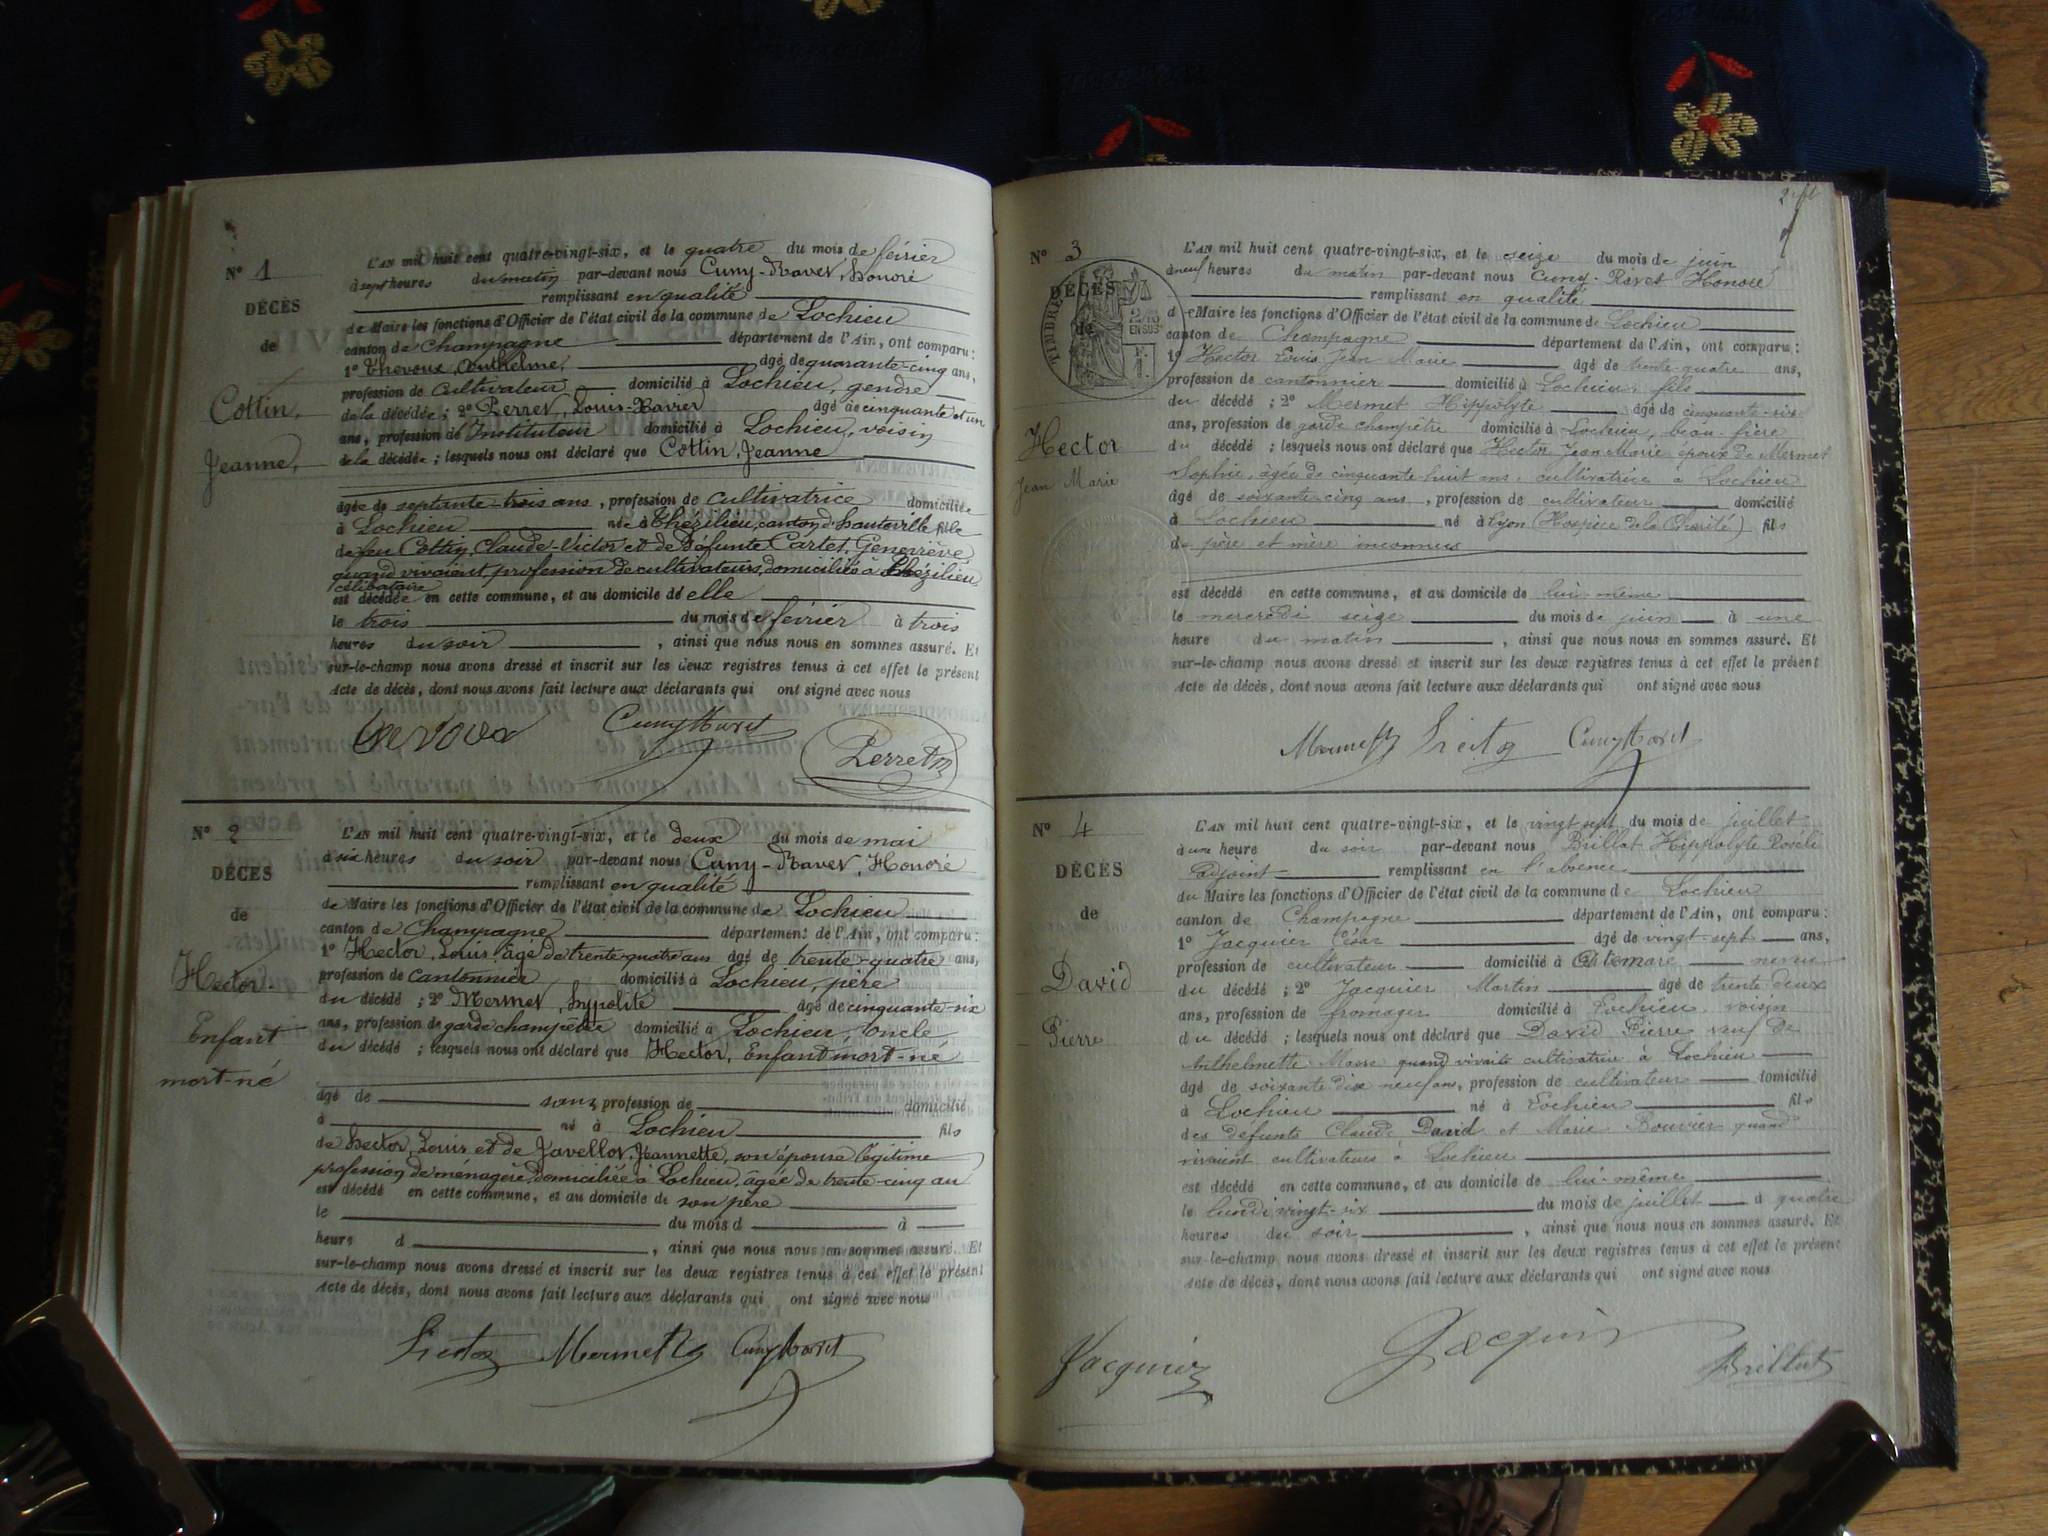 N° 1
DÉCÈS
de
Cottin,
Jeanne,
L'AN mil huit cent quatre-vingt-six, et le quatre du mois de février
à sept heures du matin par-devant nous Cuny-Ravet, Honoré
remplissant en qualité
de Maire les fonctions d'Officier de l'état civil de la commune de Lochieu
canton de Champagne département de l'Ain, ont comparu :
1° Thevoux, Anthelme, âgé de quarante-cinq ans,
profession de Cultivateur domicilié à Lochieu, gendre
de la décédée ; 2° Perret, Louis-Xavier âgé de cinquante et un
ans, profession de Instituteur domicilié à Lochieu, voisin
de la décédée ; lesquels nous ont déclaré que Cottin, Jeanne
âgée de septante-trois ans, profession de cultivatrice domiciliée
à Lochieu née à Thézilieu, canton d'Hauteville fille
de feu Cottin, Claude-Victor et de Défunte Cartet, Geneviève
quand vivaient, profession de cultivateurs, domiciliés à Thézilieu,
célibataire
est décédée en cette commune, et au domicile d'elle
le trois du mois de février à trois
heures du soir, ainsi que nous nous en sommes assuré. Et
sur-le-champ nous avons dressé et inscrit sur les deux registres tenus à cet effet le présent
Acte de décès, dont nous avons fait lecture aux déclarants qui ont signé avec nous
Cuny Ravet
Perret
N° 2
DÉCÈS
de
Hector.
Enfant
mort-né
L'AN mil huit cent quatre-vingt-six, et le deux du mois de mai
à six heures du soir par-devant nous Cuny-Ravet, Honoré
remplissant en qualité
de Maire les fonctions d'Officier de l'état civil de la commune de Lochieu
canton de Champagne département de l'Ain, ont comparu :
1° Hector, Louis, âgé de trente-quatre ans âgé de trente-quatre ans,
profession de cantonnier domicilié à Lochieu, père
du décédé ; 2° Mermet, Hypolite âgé de cinquante-six
ans, profession de garde champêtre domicilié à Lochieu, oncle
du décédé ; lesquels nous ont déclaré que Hector, Enfant mort-né
âgé de sans profession de domicilié
à né à Lochieu fils
de Hector, Louis et de Javellot, Jeannette, son épouse légitime
profession de ménagère, domiciliée à Lochieu, âgée de trente-cinq ans
est décédé en cette commune, et au domicile de son père
le du mois d à
heure d, ainsi que nous nous en sommes assuré. Et
sur-le-champ nous avons dressé et inscrit sur les deux registres tenus à cet effet le présent
Acte de décès, dont nous avons fait lecture aux déclarants qui ont signé avec nous
Hector Mermet Cuny Ravet
N° 3
DÉCÈS
de
Hector
Jean Marie
L'AN mil huit cent quatre-vingt-six, et le seize du mois de juin
à neuf heures du matin par-devant nous Cuny-Ravet Honoré
remplissant en qualité
de Maire les fonctions d'Officier de l'état civil de la commune de Lochieu
canton de Champagne département de l'Ain, ont comparu :
1° Hector Louis Jean Marie âgé de trente-quatre ans,
profession de cantonnier domicilié à Lochieu, fils
du décédé ; 2° Mermet Hippolyte âgé de cinquante-six
ans, profession de garde champêtre domicilié à Lochieu, beau-frère
du décédé ; lesquels nous ont déclaré que Hector Jean Marie époux de Mermet
Sophie, âgée de cinquante huit ans, cultivatrice à Lochieu
âgé de soixante-cinq ans, profession de cultivateur domicilié
à Lochieu né à Lyon (Hospice de la Charité) fils
de père et mère inconnus
est décédé en cette commune, et au domicile de lui-même
le mercredi seize du mois de juin à une
heure du matin, ainsi que nous nous en sommes assuré. Et
sur-le-champ nous avons dressé et inscrit sur les deux registres tenus à cet effet le présent
Acte de décès, dont nous avons fait lecture aux déclarants qui ont signé avec nous
Mermet Hector Cuny Ravet
N° 4
DÉCÈS
de
David
Pierre
L'AN mil huit cent quatre-vingt-six, et le vingt sept du mois de juillet
à une heure du soir par-devant nous Brillat Hippolyte
adjoint remplissant en l'absence
du Maire les fonctions d'Officier de l'état civil de la commune de Lochieu
canton de Champagne département de l'Ain, ont comparu :
1° Jacquier César âgé de vingt-sept ans,
profession de cultivateur domicilié à Artemare neveu
du décédé ; 2° Jacquier Martin âgé de trente deux
ans, profession de fromager domicilié à Lochieu voisin
du décédé ; lesquels nous ont déclaré que David Pierre veuf de
Anthelmette Masse quand vivait cultivatrice à Lochieu
âgé de soixante dix neuf ans, profession de cultivateur domicilié
à Lochieu né à Lochieu fils
des défunts Claude David et Marie Bouvier quand
vivaient cultivateurs à Lochieu
est décédé en cette commune, et au domicile de lui-même
le lundi vingt-six du mois de juillet à quatre
heures du soir, ainsi que nous nous en sommes assuré. Et
sur-le-champ nous avons dressé et inscrit sur les deux registres tenus à cet effet le présent
Acte de décès, dont nous avons fait lecture aux déclarants qui ont signé avec nous
Jacquier Jacquier Brillat